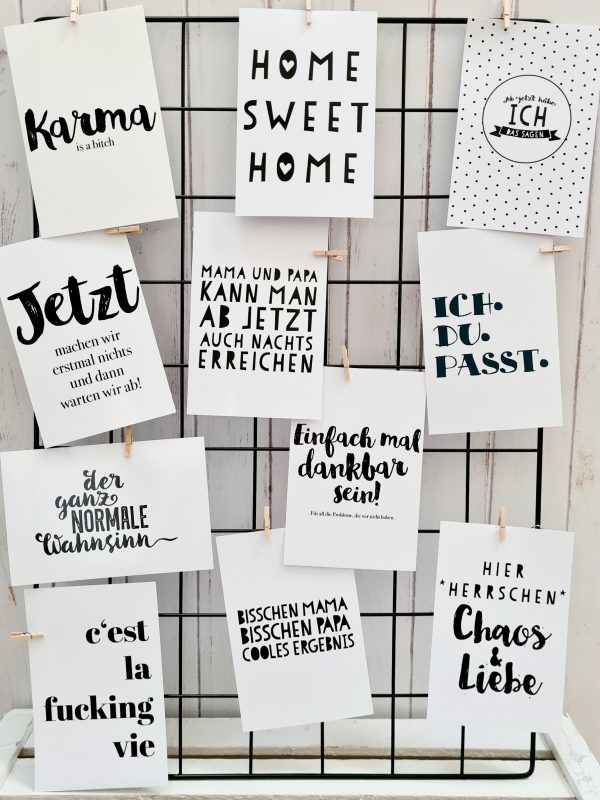 Karma
is a bitch
HOME
SWEET
HOME
Ab jetzt habe
ICH
DAS SAGEN
Jetzt
machen wir
erstmal nichts
und dann
warten wir ab!
MAMA UND PAPA
KANN MAN
AB JETZT
AUCH NACHTS
ERREICHEN
ICH.
DU.
PASST.
der
ganz
NORMALE
Wahnsinn
Einfach mal
dankbar
sein!
Für all die Probleme, die wir nicht haben.
c'est
la
fucking
vie
BISSCHEN MAMA
BISSCHEN PAPA
COOLES ERGEBNIS
HIER
*HERRSCHEN*
Chaos
&
Liebe